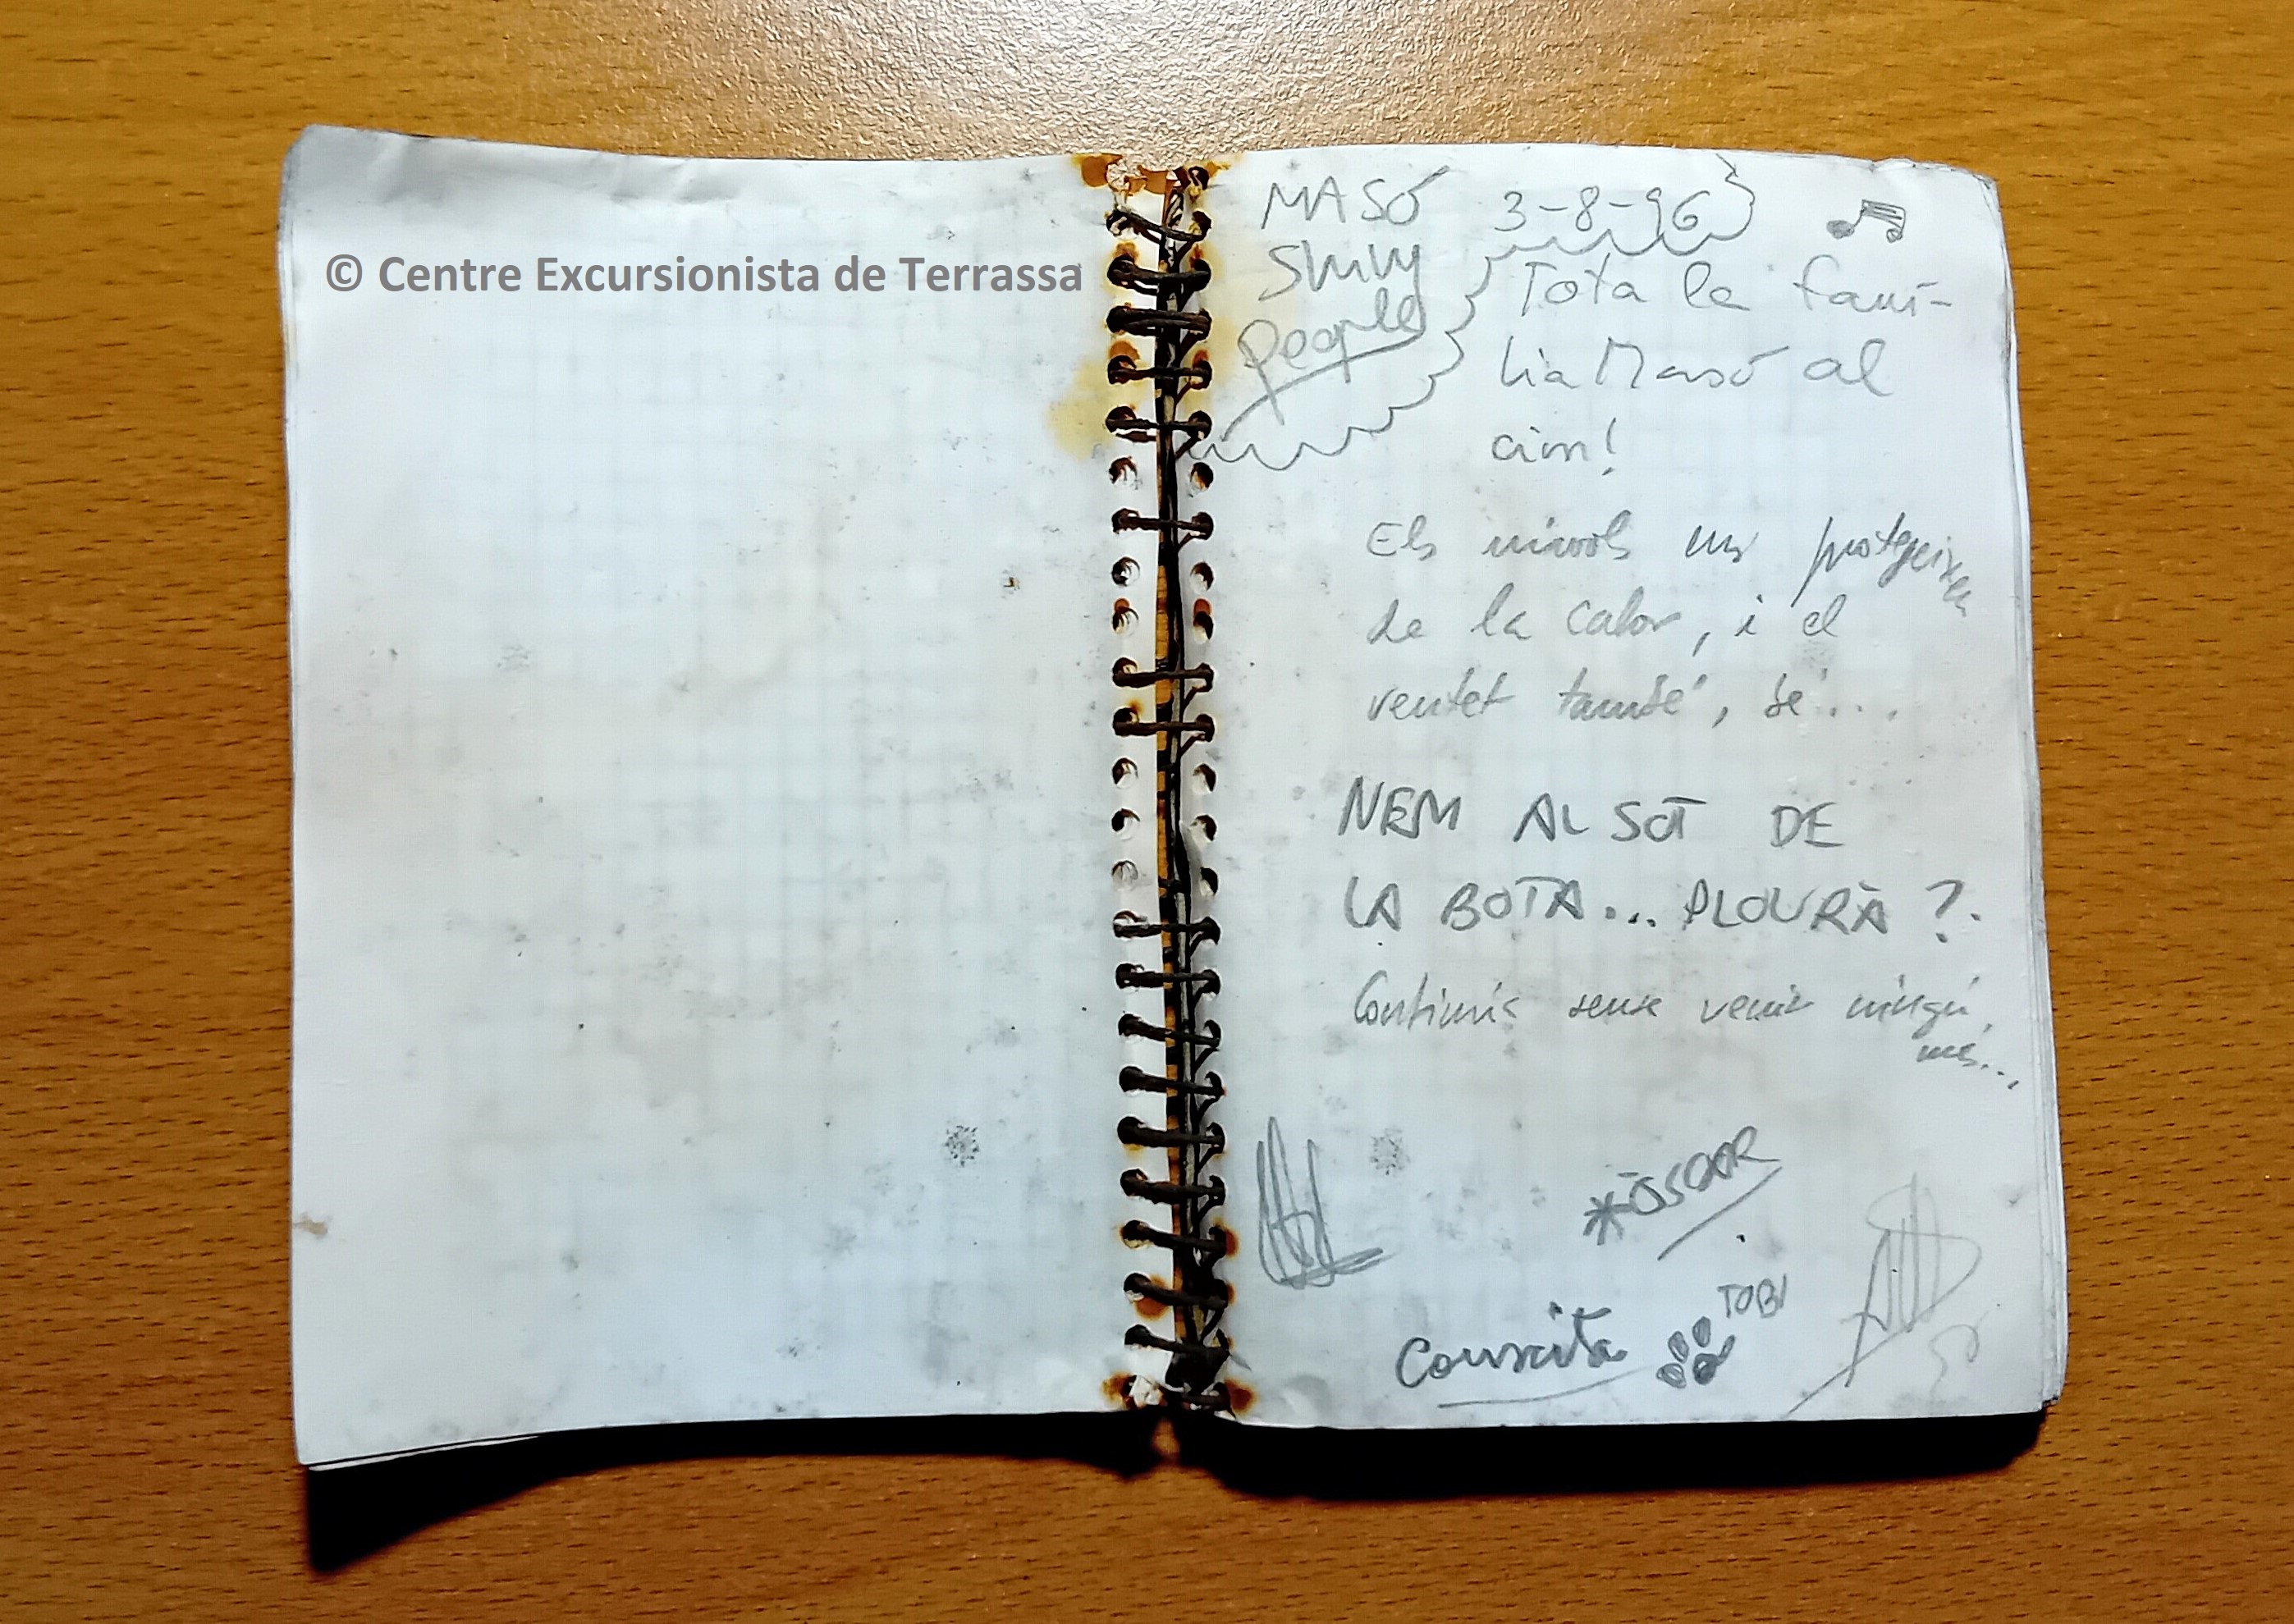 © Centre Excursionista de Terrassa
MASÓ
Shiny
people
3-8-96
Tota la famí-
lia Masó al
cim!
Els núvols ens protegeixen
de la calor, i el
ventet també, bé...
NEM AL SOT DE
LA BOTA... PLOURÀ?.
Continuis sense venir ningú
més...
*ÒSCAR
TOBI
Conxita